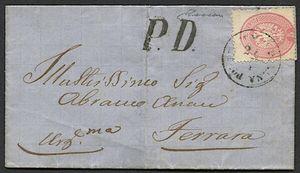 P.D.
Illustrissimo Sig
Abramo Anau
Urg.ma
Ferrara